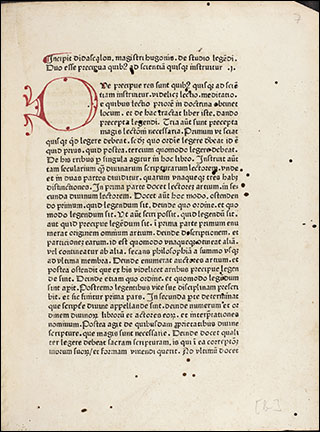 Incipit didascalon magistri hugonis. de studio legẽdi
Duo esse precipua quibꝫ ad sciẽtiã quisqꝫ instruitur .i.
Ve precipue res sunt quibꝫ quisqꝫ ad sciẽ
tiam instruitur. videlicꝫ lectio. meditatio.
e quibus lectio priorẽ in doctrina obtinet
locum. et de hac tractat liber iste. dando
precepta legendi. Tria aũt sunt precepta
magis lectiõi necessaria. Primum vt sciat
quisqꝫ qd legere debeat. Scdꝫ quo ordiẽ legere debeat id ẽ
quid prius. quid postea. tercium quomodo legere debeat.
De his tribus p singula agitur in hoc libro. Instruit aũt
tam secularium qꝫ diuinarum scripturarum lectorem. vnde
et in duas partes diuiditur. quarum vnaqueqꝫ tres habꝫ
distinctiones. In prima parte docet lectorem artium. in se
cunda diuinum lectorem. Docet aũt hoc modo. ostenden
do primum. quid legendum sit. deinde quo ordine. et quo
modo legendum sit. Vt aũt sciri possit. quid legendũ sit.
aut quid precipue legẽdum sit. i prima parte primum enu
merat originem omnium artium. deinde descriptionem. et
particiones earum. id est quomodo vnaqueqꝫ cõtineat aliã.
vel contineatur ab alia. secans philosophiã a summo vsqꝫ
ad vltima membra. Deinde enumerat auctores artium. et
postea ostendit que ex his videlicet artibus precipue legen
de sint. Deinde etiam quo ordine. et quomodo legendum
sint apit. Postremo legentibus vite sue disciplinam prescri
bit. et sic finitur prima pars. In secunda pte determinat
que scripture diuine appellande sunt. deinde numerum et or
dinem diuinorum librorũ et actores eorum. et interpretationes
nominum. Postea agit de quibusdam proprietatibus diuine
scripture. que magis sunt necessarie. Deinde docet quali
ter legere debeat sacram scripturam. is qui i ea correptiõẽ
morum suorum et formam viuendi querit. Ad vltimũ docet